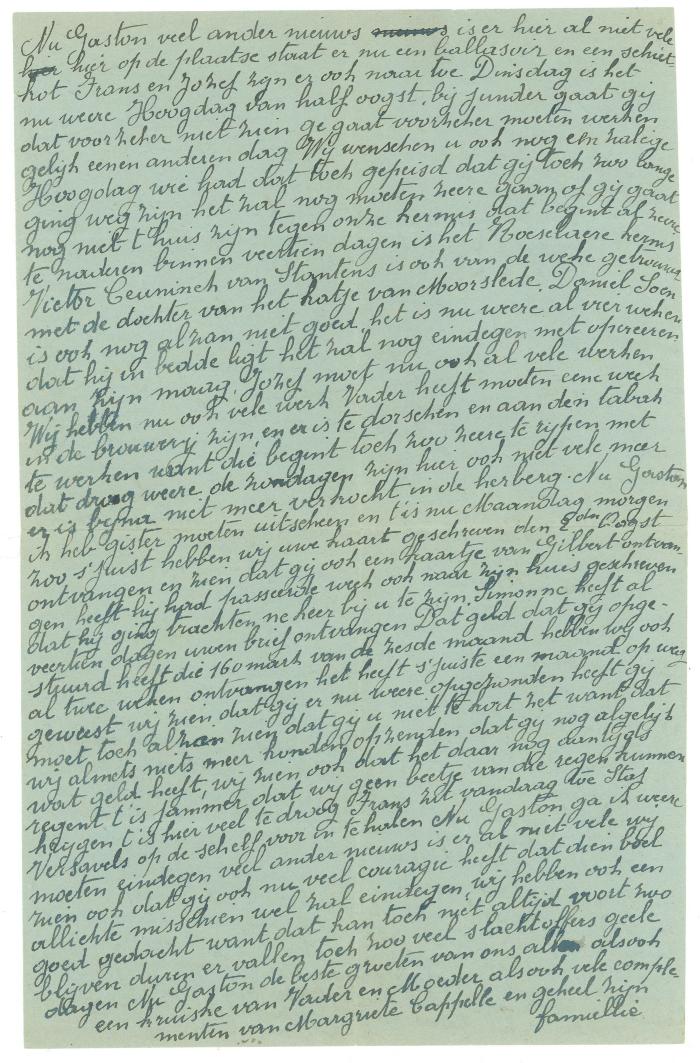 Nu Gaston veel ander nieuws nieuws is er hier al niet vele
hier hier op de plaatse staat er nu een ballasoir en een schiet-
kot Frans en Jozef zijn er ook naar toe Dinsdag is het
nu weere Hoogdag van half oogst, bij junder gaat gij
dat voorzeher niet zien ge gaat voorzeher moeten werken
gelijk eenen anderen dag Wij wenschen u ook nog een zalige
Hoogdag wie had dat toch gepeisd dat gij toch zoo lange
ging weg zijn het zal nog moeten zeere gaan of gij gaat
nog niet t'huis zijn tegen onze kermis dat begint al zeere
te naderen binnen veertien dagen is het Roeselaere kermis
Victor Ceuninck van Stantens is ook van de weke getrouwd
met de dochter van het hatje van Moorslede. Daniel Soen
is ook nog alzan niet goed, het is nu weere al vier weken
dat hij in bedde ligt het zal nog eindegen met opereeren
aan zijn maag, Jozef moet nu ook al vele werken
Wij hebben nu ook vele werk Vader heeft moeten eene week
in de brouwerij zijn, en er is te dorschen en aan den tabak
te werken want die begint toch zoo zeere te rijpen met
dat droog weere, de zondagen zijn hier ook niet vele meer
er is bijna niet meer verkocht in de herberg. Nu Gaston
ik heb gister moeten uitscheen en t'is nu Maandag morgen
zoo s'juist hebben wij uwe kaart geschreven den 2den Oogst
ontvangen en zien dat gij ook een kaartje van Gilbert ontvan-
gen heeft hij had passeerde week ook naar zijn huis geschreven
dat hij ging trachten ne keer bij u te zijn. Simonne heeft al
veertien dagen uwen brief ontvangen Dat geld dat gij opge-
stuurd heeft die 160 mark van de zesde maand hebben wij ook
al twee weken ontvangen het heeft s'juiste een maand op weg
geweest wij zien dat gij er nu weere opgezonden heeft gij
moet toch alzan zien dat gij u niet te kort zet want dat
wij almets niets meer konden opzenden, dat gij nog algelijk
wat geld heeft, wij zien ook dat het daar nog aanligs
regent t'is jammer dat wij geen beetje van die regen kunnen
krijgen t'is hier veel te droog Frans zit vandaag toe Staf
Versavels op de schelf voor in te halen Nu Gaston ga ik weere
moeten eindegen veel ander nieuws is er al niet vele wij
zien ook dat gij ook nu veel couragie heeft dat dien boel
allichte misschien wel zal eindegen, wij hebben ook een
goed gedacht want dat kan toch niet altijd voort zoo
blijven duren er vallen toch zoo veel slachtoffers geele
dagen Nu Gaston de beste groeten van ons allen alsook
een kruiske van Vader en Moeder alsook vele comple-
menten van Margriete Cappelle en geheel zijn
familie